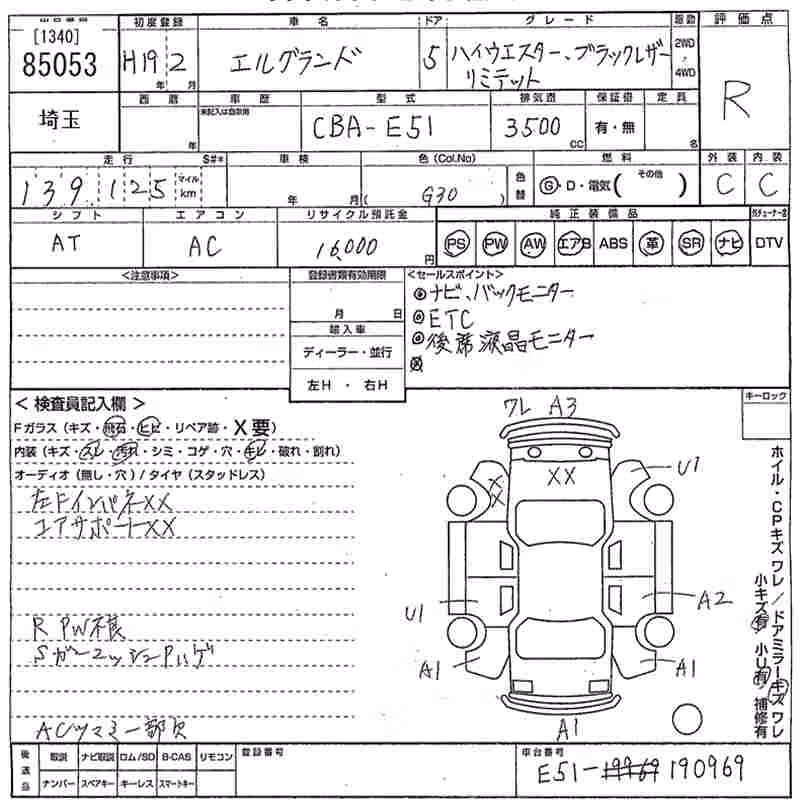 [1340]
85053
初度登録
車名
ドア
グレード
駆動
評価点
H19年 2月
エルグランド
5
ハイウエスター、ブラックレザー
リミテット
2WD
・
4WD
R
埼玉
西暦
年
車歴
未記入は自家用
型式
CBA-E51
排気量
3500 CC
保証書
有・無
定員
名
走行
S#*
車検
色(Col.No)
燃料
外装
内装
139,125
マイル
km
年 月(
G30 )
色替
G・D・電気( その他 )
C
C
シフト
エアコン
リサイクル預託金
純正装備品
AT
AC
16,000円
PS PW AW エアB ABS 革 SR ナビ DTV
<注意事項>
登録書類有効期限
月 日
輸入車
ディーラー・並行
左H・右H
<セールスポイント>
ナビ、バックモニター
ETC
後席液晶モニター
<検査員記入欄>
キーロック
Fガラス(キズ・飛石・ヒビ・リペア跡・X要)
内装(キズ・スレ・汚れ・シミ・コゲ・穴・キレ・破れ・割れ)
オーディオ(無し・穴)/タイヤ(スタッドレス)
左FインパネXX
コアサポートXX
R PW不良
Sガーニッシュ Pハゲ
ACツマミ一部欠
ワレ A3
XX
XX
U1
U1
A2
A1
A1
A1
ホイル・CPキズ ワレ/ドアミラーキズ ワレ
小キズ有 小U有 補修有
後送品
取説 ナビ取説 ロム/SD B-CAS リモコン
ナンバー スペアキー キーレス スマートキー
登録番号
車台番号
E51-190969